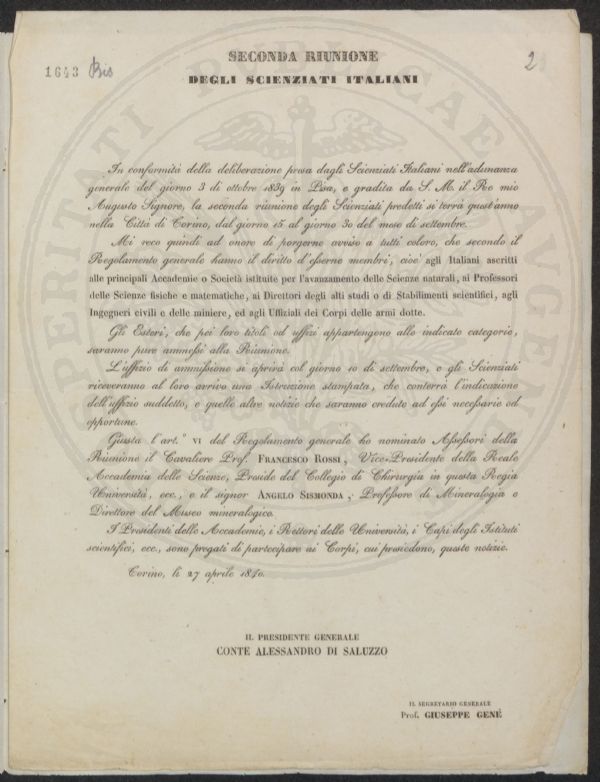 SECONDA RIUNIONE
DEGLI SCIENZIATI ITALIANI
1643 Bis
2
In conformità della deliberazione presa dagli Scienziati Italiani nell'adunanza
generale del giorno 3 di ottobre 1839 in Pisa, e gradita da S. M. il Re mio
Augusto Signore, la seconda riunione degli Scienziati predetti si terrà quest'anno
nella Città di Torino, dal giorno 15 al giorno 30 del mese di settembre.
Mi reco quindi ad onore di porgerne avviso a tutti coloro, che secondo il
Regolamento generale hanno il diritto d'esserne membri, cioè agli Italiani ascritti
alle principali Accademie o Società istituite per l'avanzamento delle Scienze naturali, ai Professori
delle Scienze fisiche e matematiche, ai Direttori degli alti studi o di Stabilimenti scientifici, agli
Ingegneri civili e delle miniere, ed agli Uffiziali dei Corpi delle armi dotte.
Gli Esteri, che pei loro titoli od uffizi appartengono alle indicate categorie,
saranno pure ammessi alla Riunione.
L'uffizio di ammissione si aprirà col giorno 10 di settembre, e gli Scienziati
riceveranno al loro arrivo una Istruzione stampata, che conterrà l'indicazione
dell'uffizio suddetto, e quelle altre notizie che saranno credute ad essi necessarie od
opportune.
Giusta l'art.° VI del Regolamento generale ho nominato Assessori della
Riunione il Cavaliere Prof. FRANCESCO ROSSI, Vice-Presidente della Reale
Accademia delle Scienze, Preside del Collegio di Chirurgia in questa Regia
Università, ecc., e il signor ANGELO SISMONDA, Professore di Mineralogia e
Direttore del Museo mineralogico.
I Presidenti delle Accademie, i Rettori delle Università, i Capi degli Istituti
scientifici, ecc., sono pregati di partecipare ai Corpi, cui presiedono, queste notizie.
Torino, li 27 aprile 1840.
IL PRESIDENTE GENERALE
CONTE ALESSANDRO DI SALUZZO
IL SEGRETARIO GENERALE
Prof. GIUSEPPE GENÉ